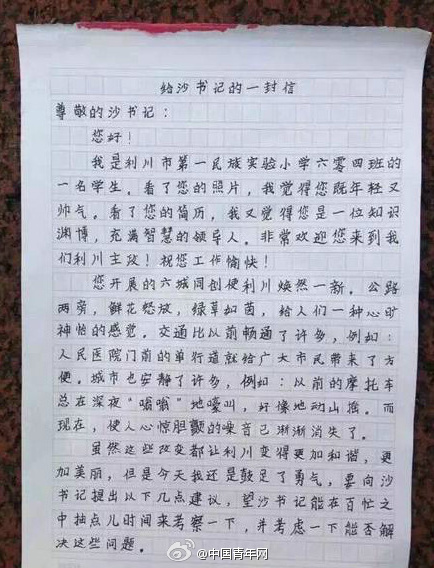 给沙书记的一封信
尊敬的沙书记：
您好！
我是利川市第一民族实验小学六零四班的
一名学生。看了您的照片，我觉得您既年轻又
帅气。看了您的简历，我又觉得您是一位知识
渊博，充满智慧的领导人。非常欢迎您来到我
们利川主政！祝您工作愉快！
您开展的六城同创使利川焕然一新。公路
两旁，鲜花怒放，绿草如茵，给人们一种心旷
神怡的感觉。交通比以前畅通了许多，例如：
人民医院门前的单行道就给广大市民带来了方
便。城市也安静了许多，例如：以前的摩托车
总在深夜“嗡嗡”地嚎叫，好像地动山摇。而
现在，使人心惊胆颤的噪音已渐渐消失了。
虽然这些改变都让利川变得更加和谐，更
加美丽，但是今天我还是鼓足了勇气，要向沙
书记提出以下几点建议，望沙书记能在百忙之
中抽点儿时间来考察一下，并考虑一下能否解
决这些问题。
@中国青年网